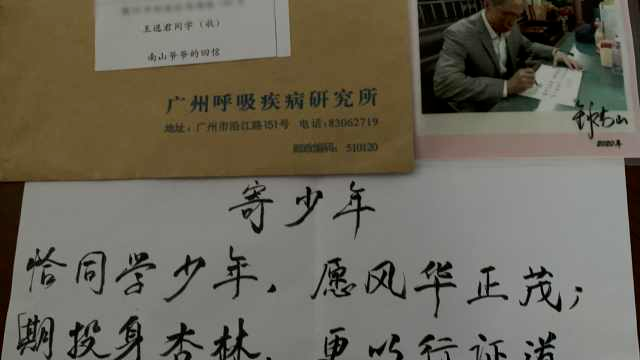 王迅君同学（收）
南山爷爷的回信
广州呼吸疾病研究所
地址：广州市沿江路151号 电话：83062719
邮政编码：510120
钟南山
2020年
寄少年
恰同学少年，愿风华正茂；
期投身杏林，更以行证道